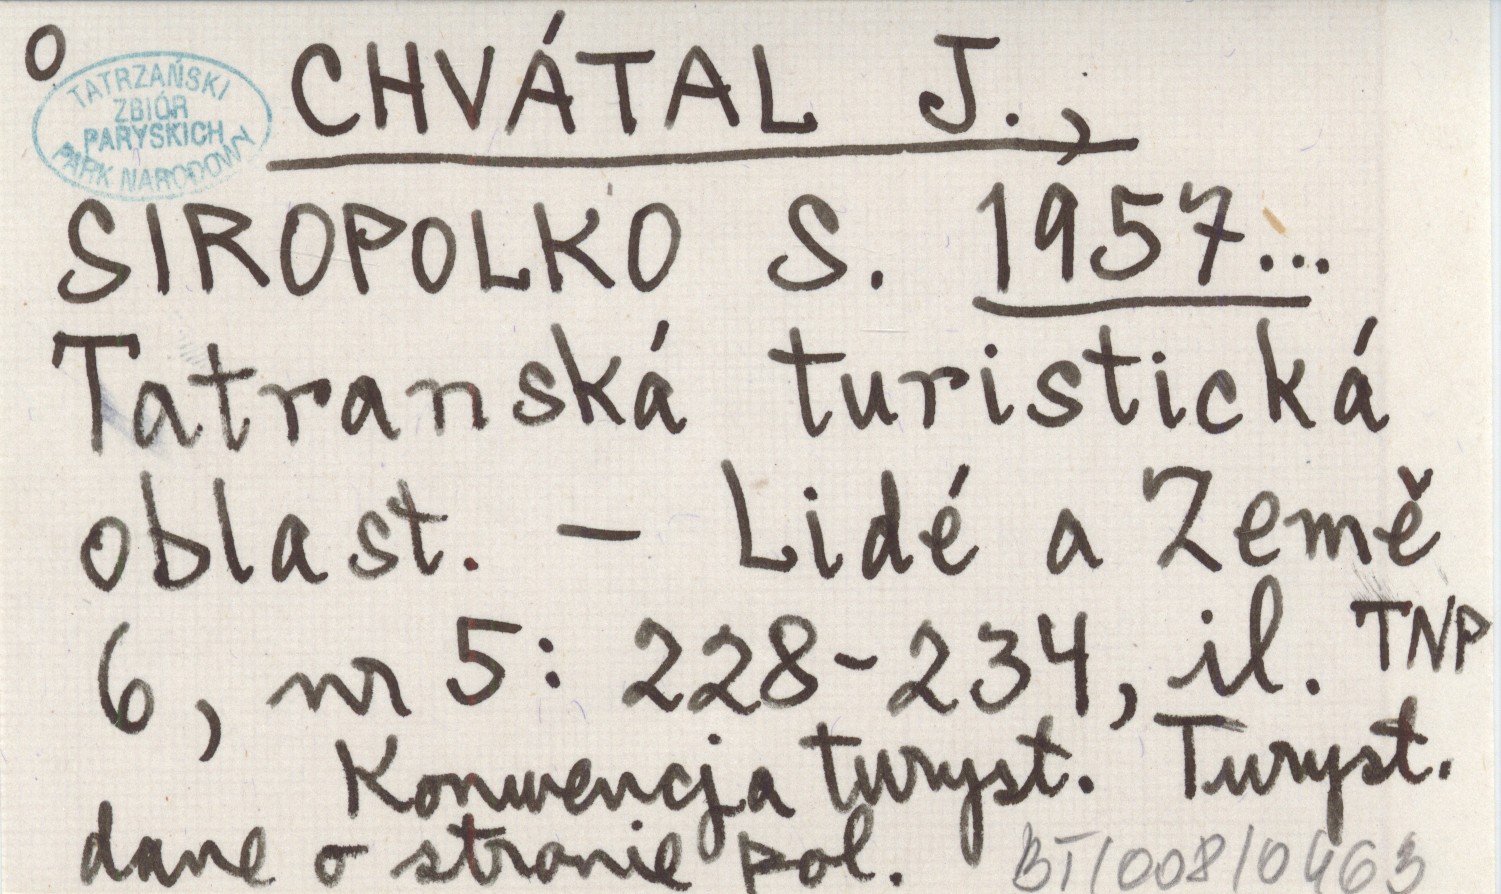 O
TATRZAŃSKI
ZBIÓR
PARYSKICH
PARK NARODOWY
CHVÁTAL J.,
SIROPOLKO S. 1957...
Tatranská turistická
oblast. – Lidé a Země
6, nr 5: 228-234, il. TNP
Konwencja turyst. Turyst.
dane o stronie pol.
BT/008/0463